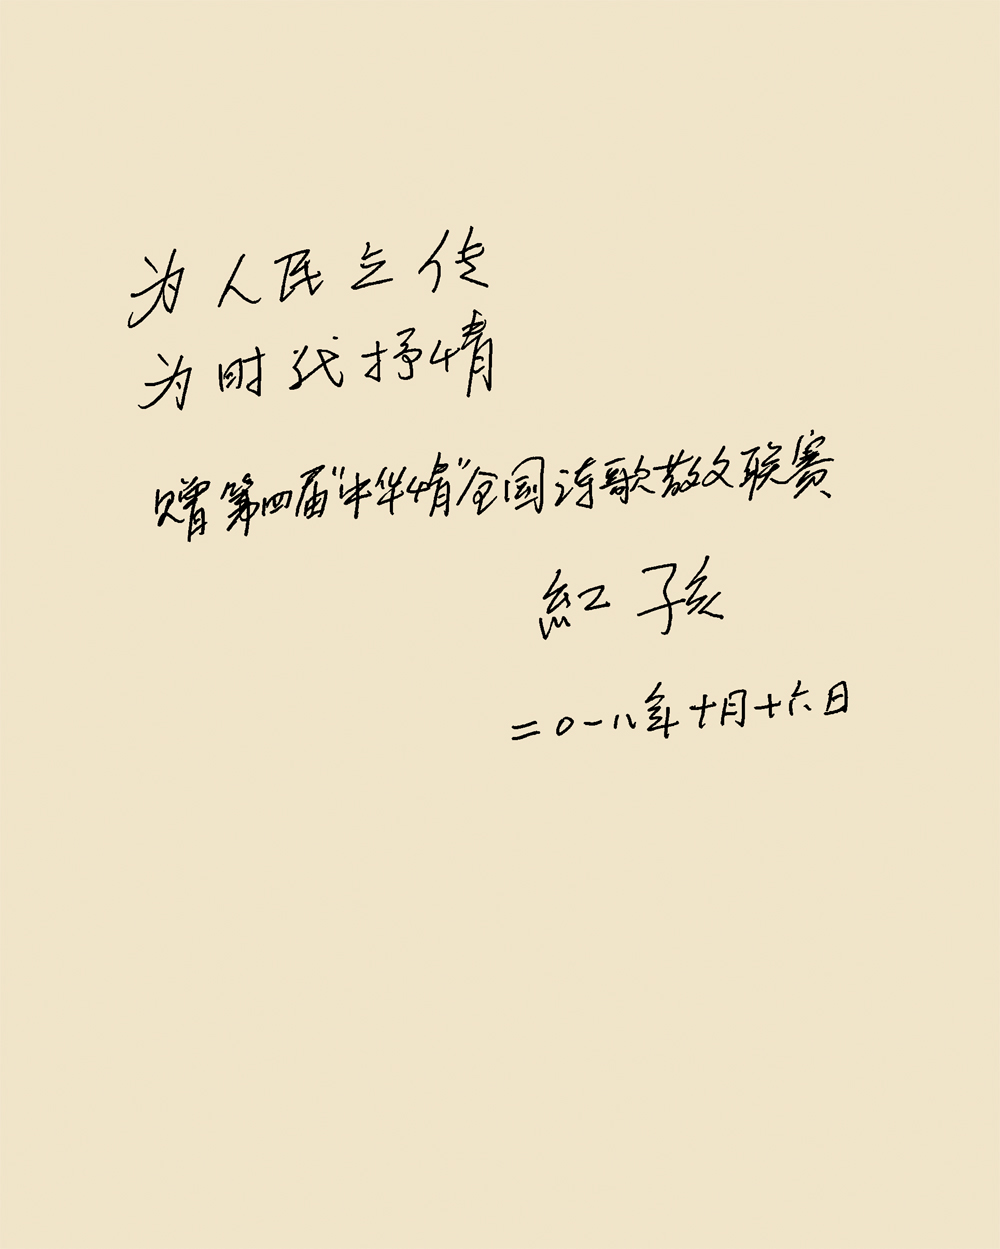 为人民立传
为时代抒情
赠第四届“中华情”全国诗歌散文联赛
紅孩
二0一八年十月十六日